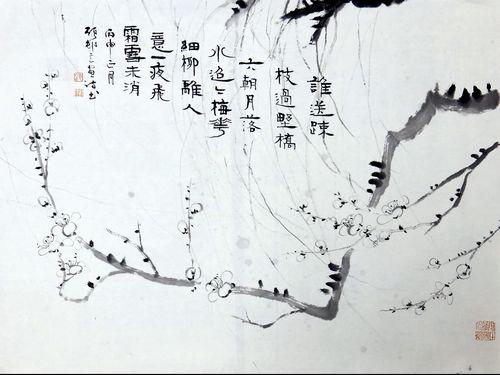 誰送踈
枝過野橋
六朝月落
水迢々梅花
細柳離人
意一夜飛
霜雪未消
丙申